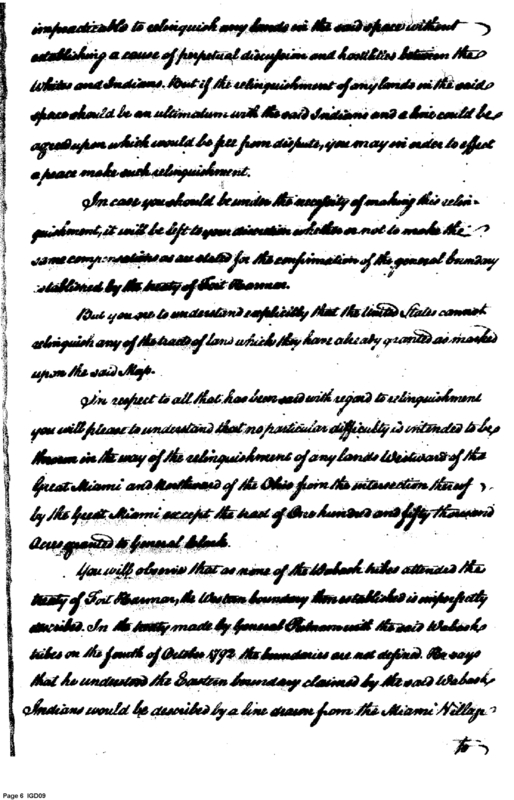 impracticable to relinquish any lands in the said space without
establishing a cause of perpetual discussion and hostilities between the
Whites and Indians. But if the relinquishment of any lands in the said
space should be an ultimatum with the said Indians and a line could be
agreed upon which would be free from dispute, you may in order to effect
a peace make such relinquishment.
In case you should be under the necessity of making this relin-
quishment, it will be left to your discretion whether or not to make the
same compensations as are stated for the confirmation of the general boundary
established by the treaty of Fort Harmar.
But you are to understand explicitly that the United States cannot
relinquish any of the tracts of land which they have already granted as marked
upon the said Map.
In respect to all that has been said with regard to relinquishment
you will please to understand that no particular difficulty is intended to be
thrown in the way of the relinquishment of any lands Westward of the
Great Miami and Northward of the Ohio from the intersection thereof
by the Great Miami except the tract of One hundred and fifty thousand
Acres granted to General Clark.
You will observe that as none of the Wabash tribes attended the
treaty of Fort Harmar, the Western boundary then established is imperfectly
described. In the treaty made by General Putnam with the said Wabash
tribes on the fourth of October 1792 the boundaries are not defined. He says
that he understood the Eastern boundary claimed by the said Wabash
Indians would be described by a line drawn from the Miami Village
to
Page 6 IGD09